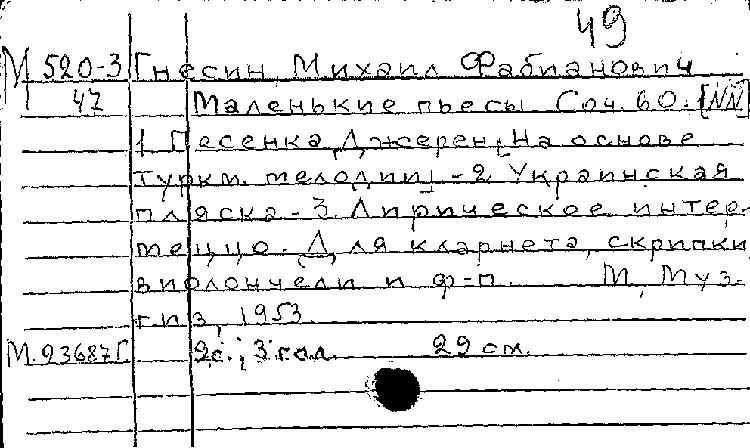 49
М 520-3 Гнесин Михаил Фабианович
47 Маленькие пьесы Соч. 60. [NN]
1 Песенка Джерен [На основе
туркм. мелодии] - 2 Украинская
пляска - 3 Лирическое интер-
меццо. Для кларнета, скрипки,
виолончели и ф-п. М, Муз-
гиз, 1953.
М.23687Г. 2с.; 3 гол. 29 см.